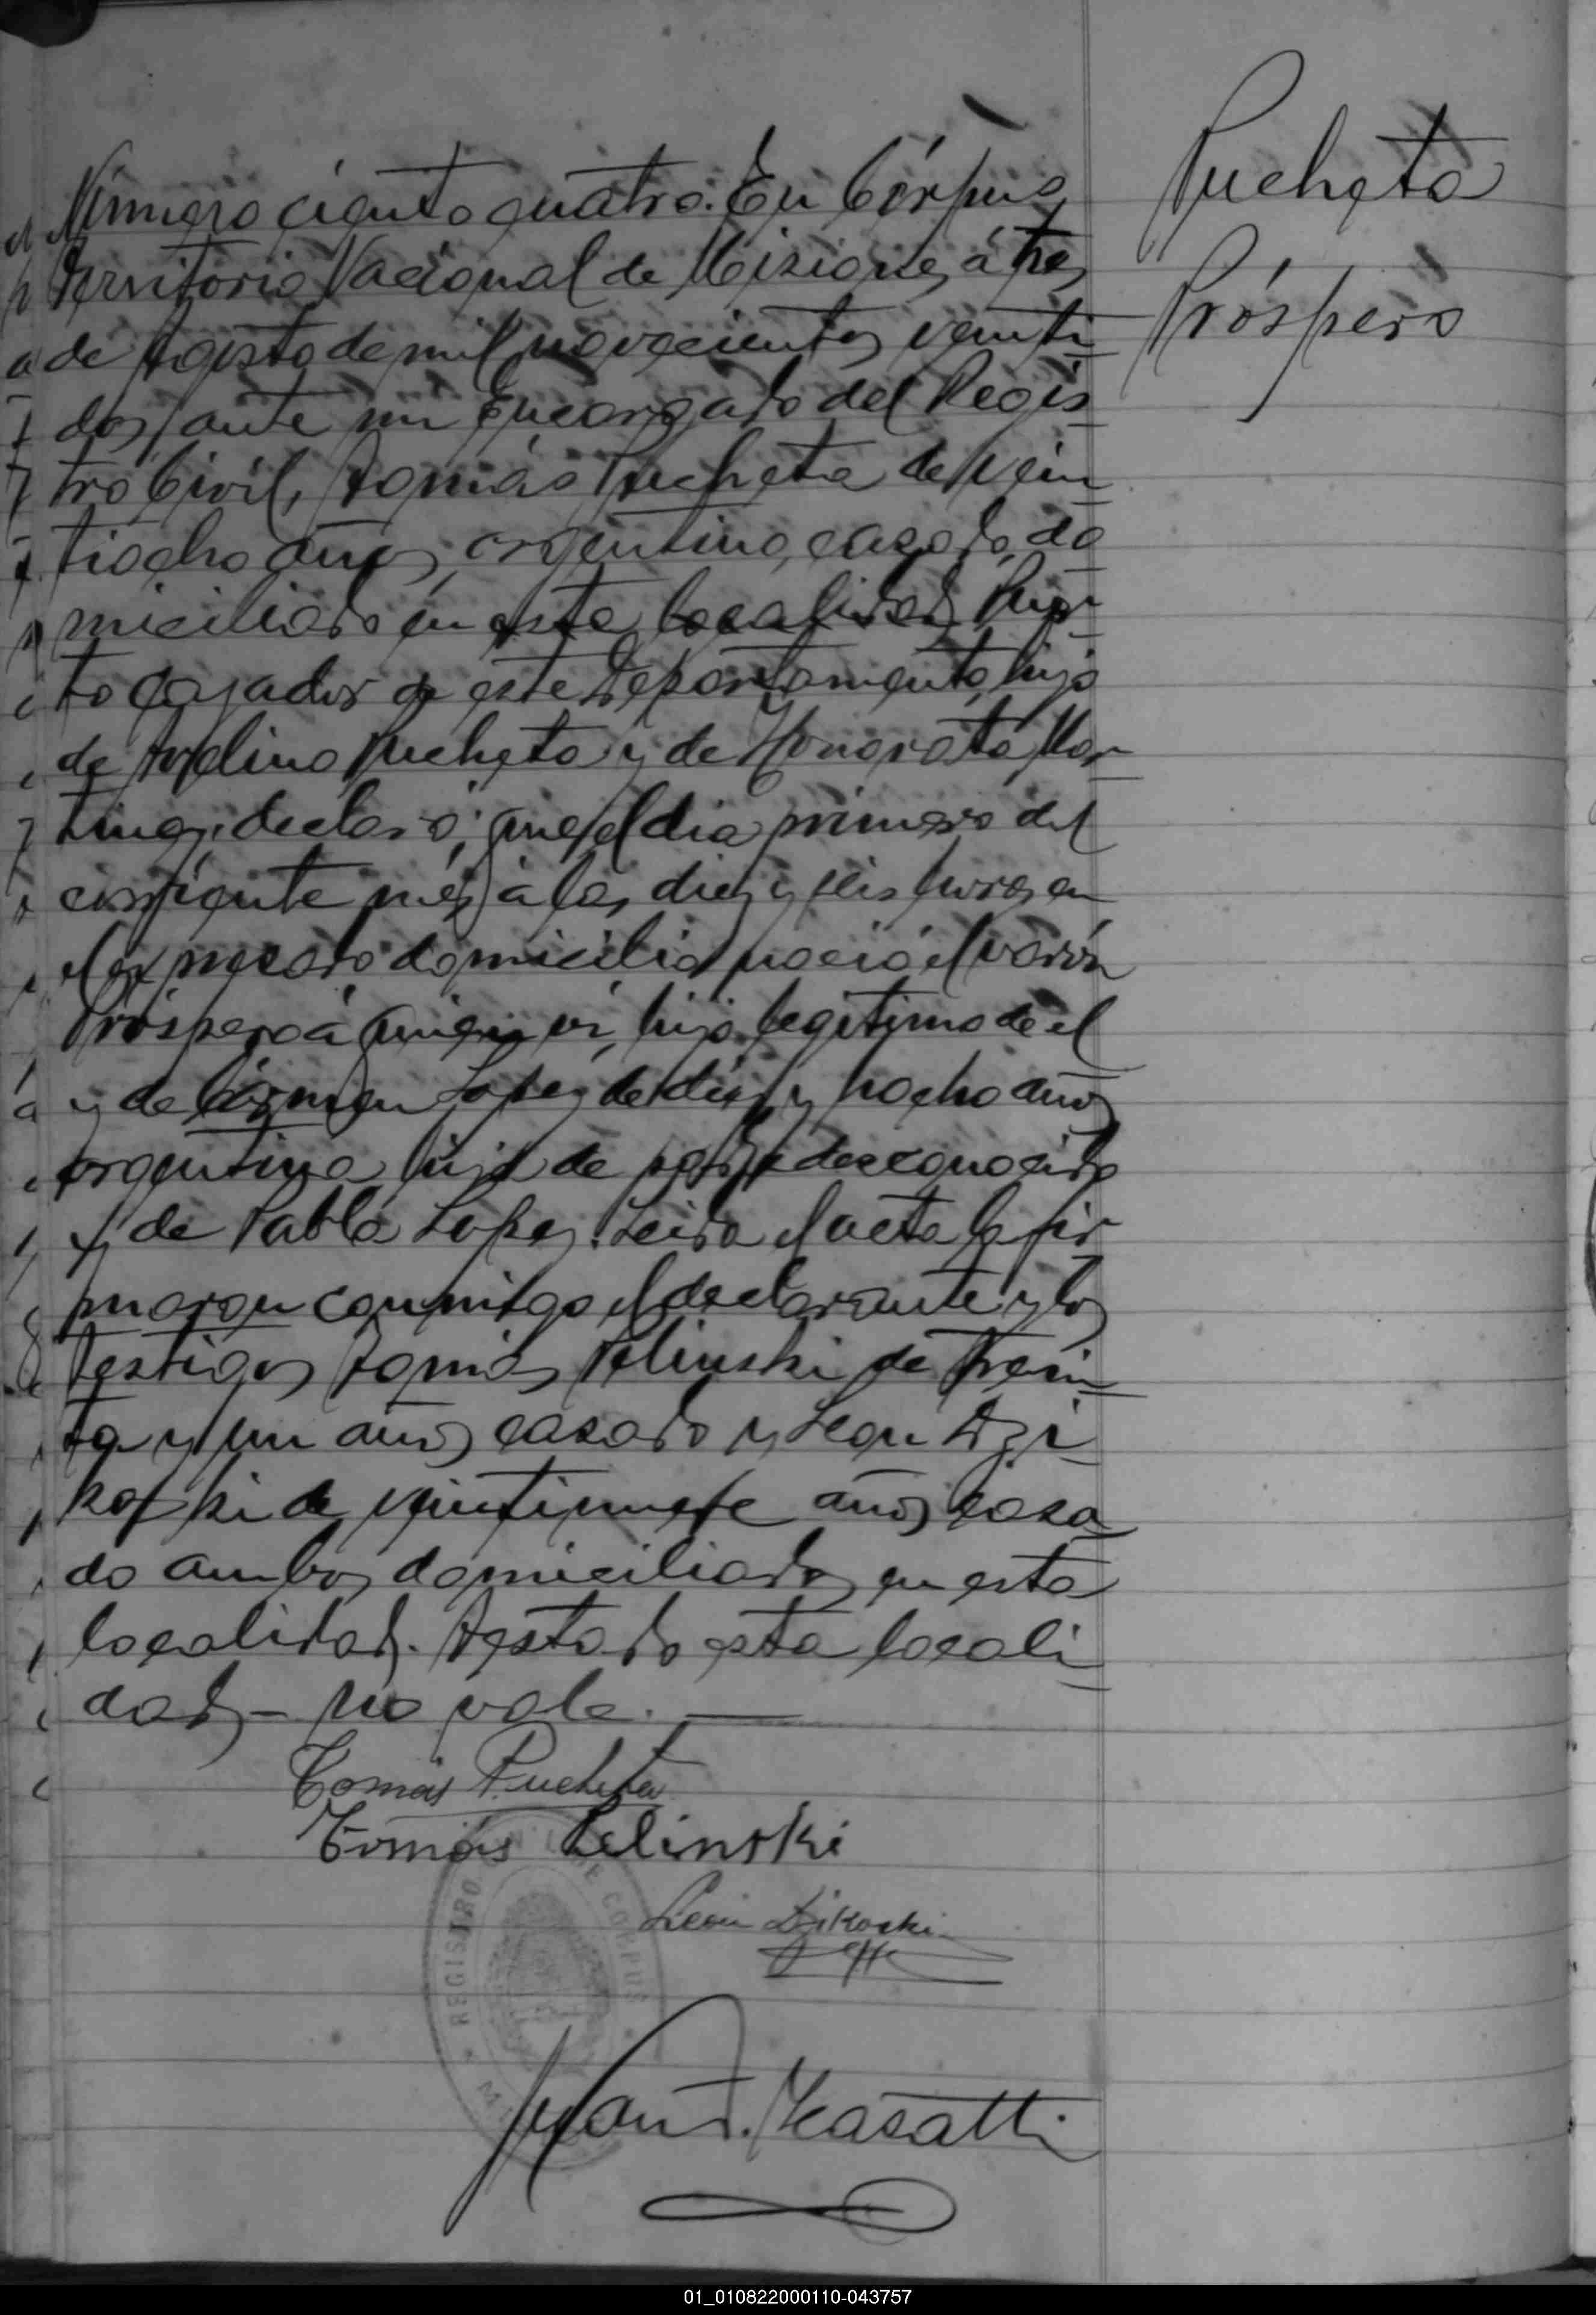 Pucheta
Próspero
Número ciento cuatro. En Córpus
Territorio Nacional de Misiones, á tres
de Agosto de mil novecientos veinti-
dos, ante mi Encargado del Regis-
tro Civil, Tomás Pucheta de vein-
tiocho años, argentino, casado, do-
miciliado en esta localidad, Puer-
to Cazador de este Departamento, hijo
de Pucheta y de Honorata Mar-
tinez, declaró; que el dia primero del
corriente mes, á las diez y seis horas, en
el expresado domicilio nació el varón
Próspero á quien ví, hijo legitimo de el
y de Cármen Lopez de diez y hocho años
argentina, hija de padre desconocido
y de Pabla Lopez. Leida el acta la fir-
maron conmigo el declarante y los
testigos Tomás Pelinski de trein-
ta y un años, casado y Leon Dzi-
koski de veintinueve años, casa-
do ambos domiciliados en esta
localidad. Testado esta locali-
dad, – No vale. —
Tomás Pucheta
Tomás Pelinski
Leon Dikoski
REGISTRO CIVIL DE CORPUS
Juan Casatti
01_010822000110-043757